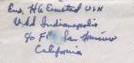 Ens. H G Emsted USN
USS Indianapolis
c/o F. San Francisco
California